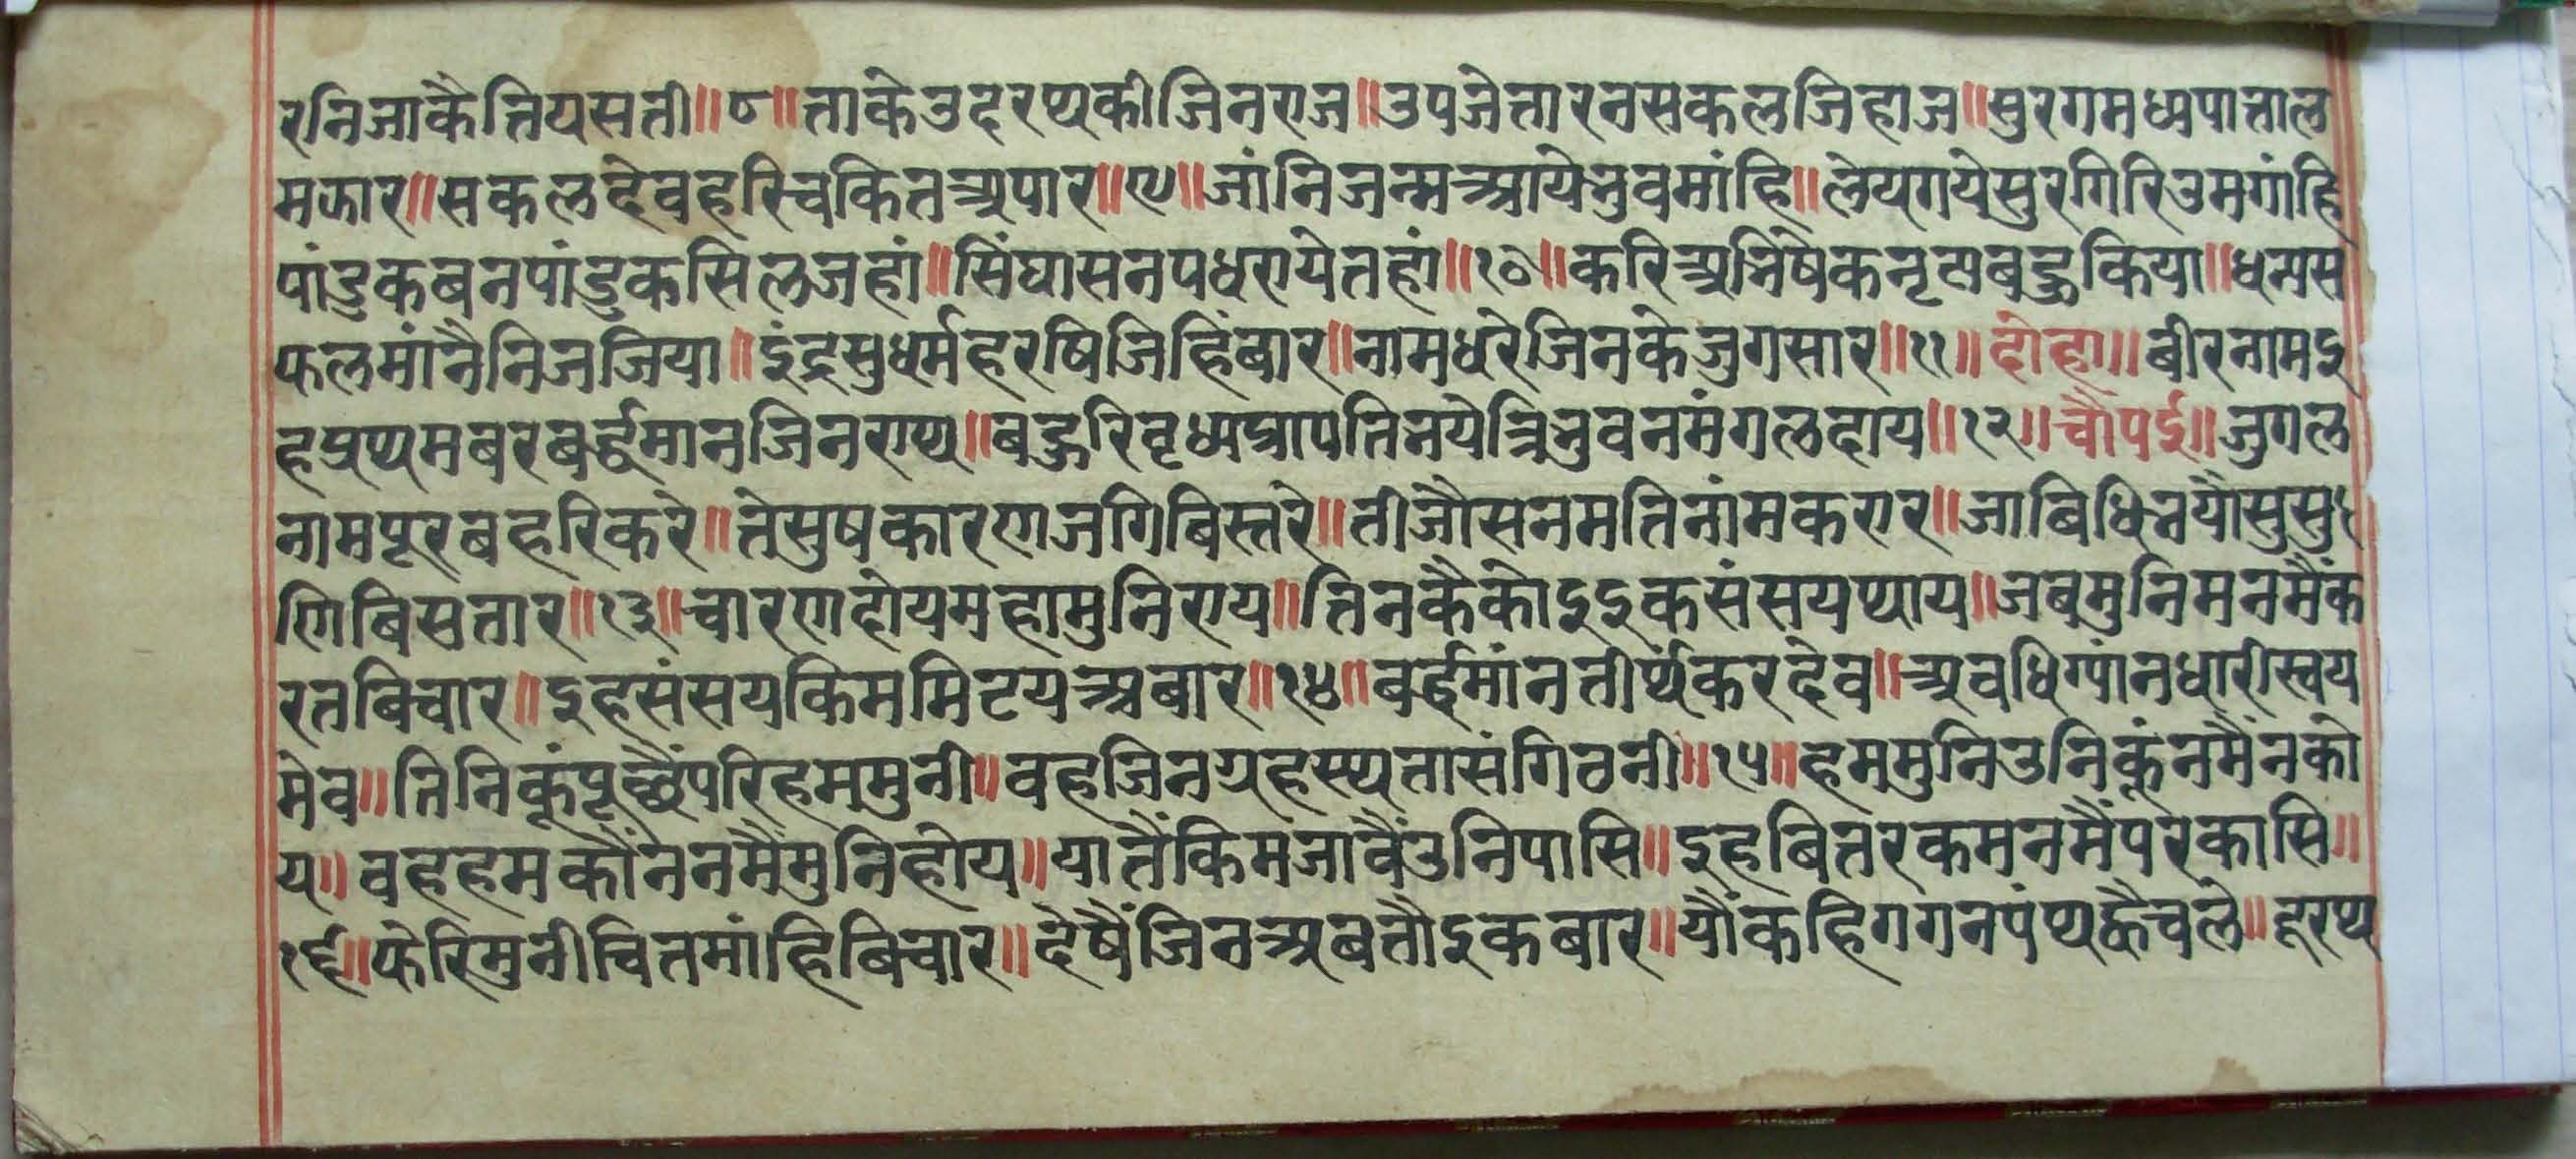 रनिजाकैत्तियसती॥८॥ताकेउदरथकीजिनराज॥उपजेतारनसकलजिहाज॥सुरगमध्यपाताल
मझार॥सकलदेवहरिचकितअपार॥९॥जांनिजन्मआयेभुवमांहि॥लेयगयेसुरगिरिउमगांहि
पांडुकबनपांडुकसिलजहां॥सिंघासनपधरायेतहां॥१०॥करिअभिषेकनृत्यबहुकिया॥धन्यस
फलमांनैनिजजिया॥इंद्रसुधर्महरषिजिहिंबार॥नामधरेजिनकेजुगसार॥११॥दोहा॥बीरनामइ
हप्रथमबरबर्द्धमानजिनराय॥बहुरिवृध्यप्रापतिभयेत्रिभुवनमंगलदाय॥१२॥चौपई॥जुगल
नामपूरबहरिकरे॥तेसुषकारणजगिबिस्तरे॥तीजौसनमतिनांमकरार॥जाबिधिभयौसुसु
णिबिसतार॥१३॥चारणदोयमहामुनिराय॥तिनकैकोइइकसंसयथाय॥जबमुनिमनमैंक
रतबिचार॥इहसंसयकिममिटयअबार॥१४॥बर्द्धमांनतीर्थंकरदेव॥अवधिग्यांनधारीस्वय
मेव॥तिनिकूंपूछैंपरिहममुनी॥वहजिनग्रहस्थतासंगिठनी॥१५॥हममुनिउनिकूंनमैंनको
य॥वहहमकौंननमैंमुनिहोय॥यातैंकिमजावैंउनिपासि॥इहबितरकमनमैंपरकासि॥
१६॥फेरिमुनीचितमांहिबिचार॥देषैंजिनअबतौइकबार॥यौंकहिगगनपंथह्वैचले॥दूरथ